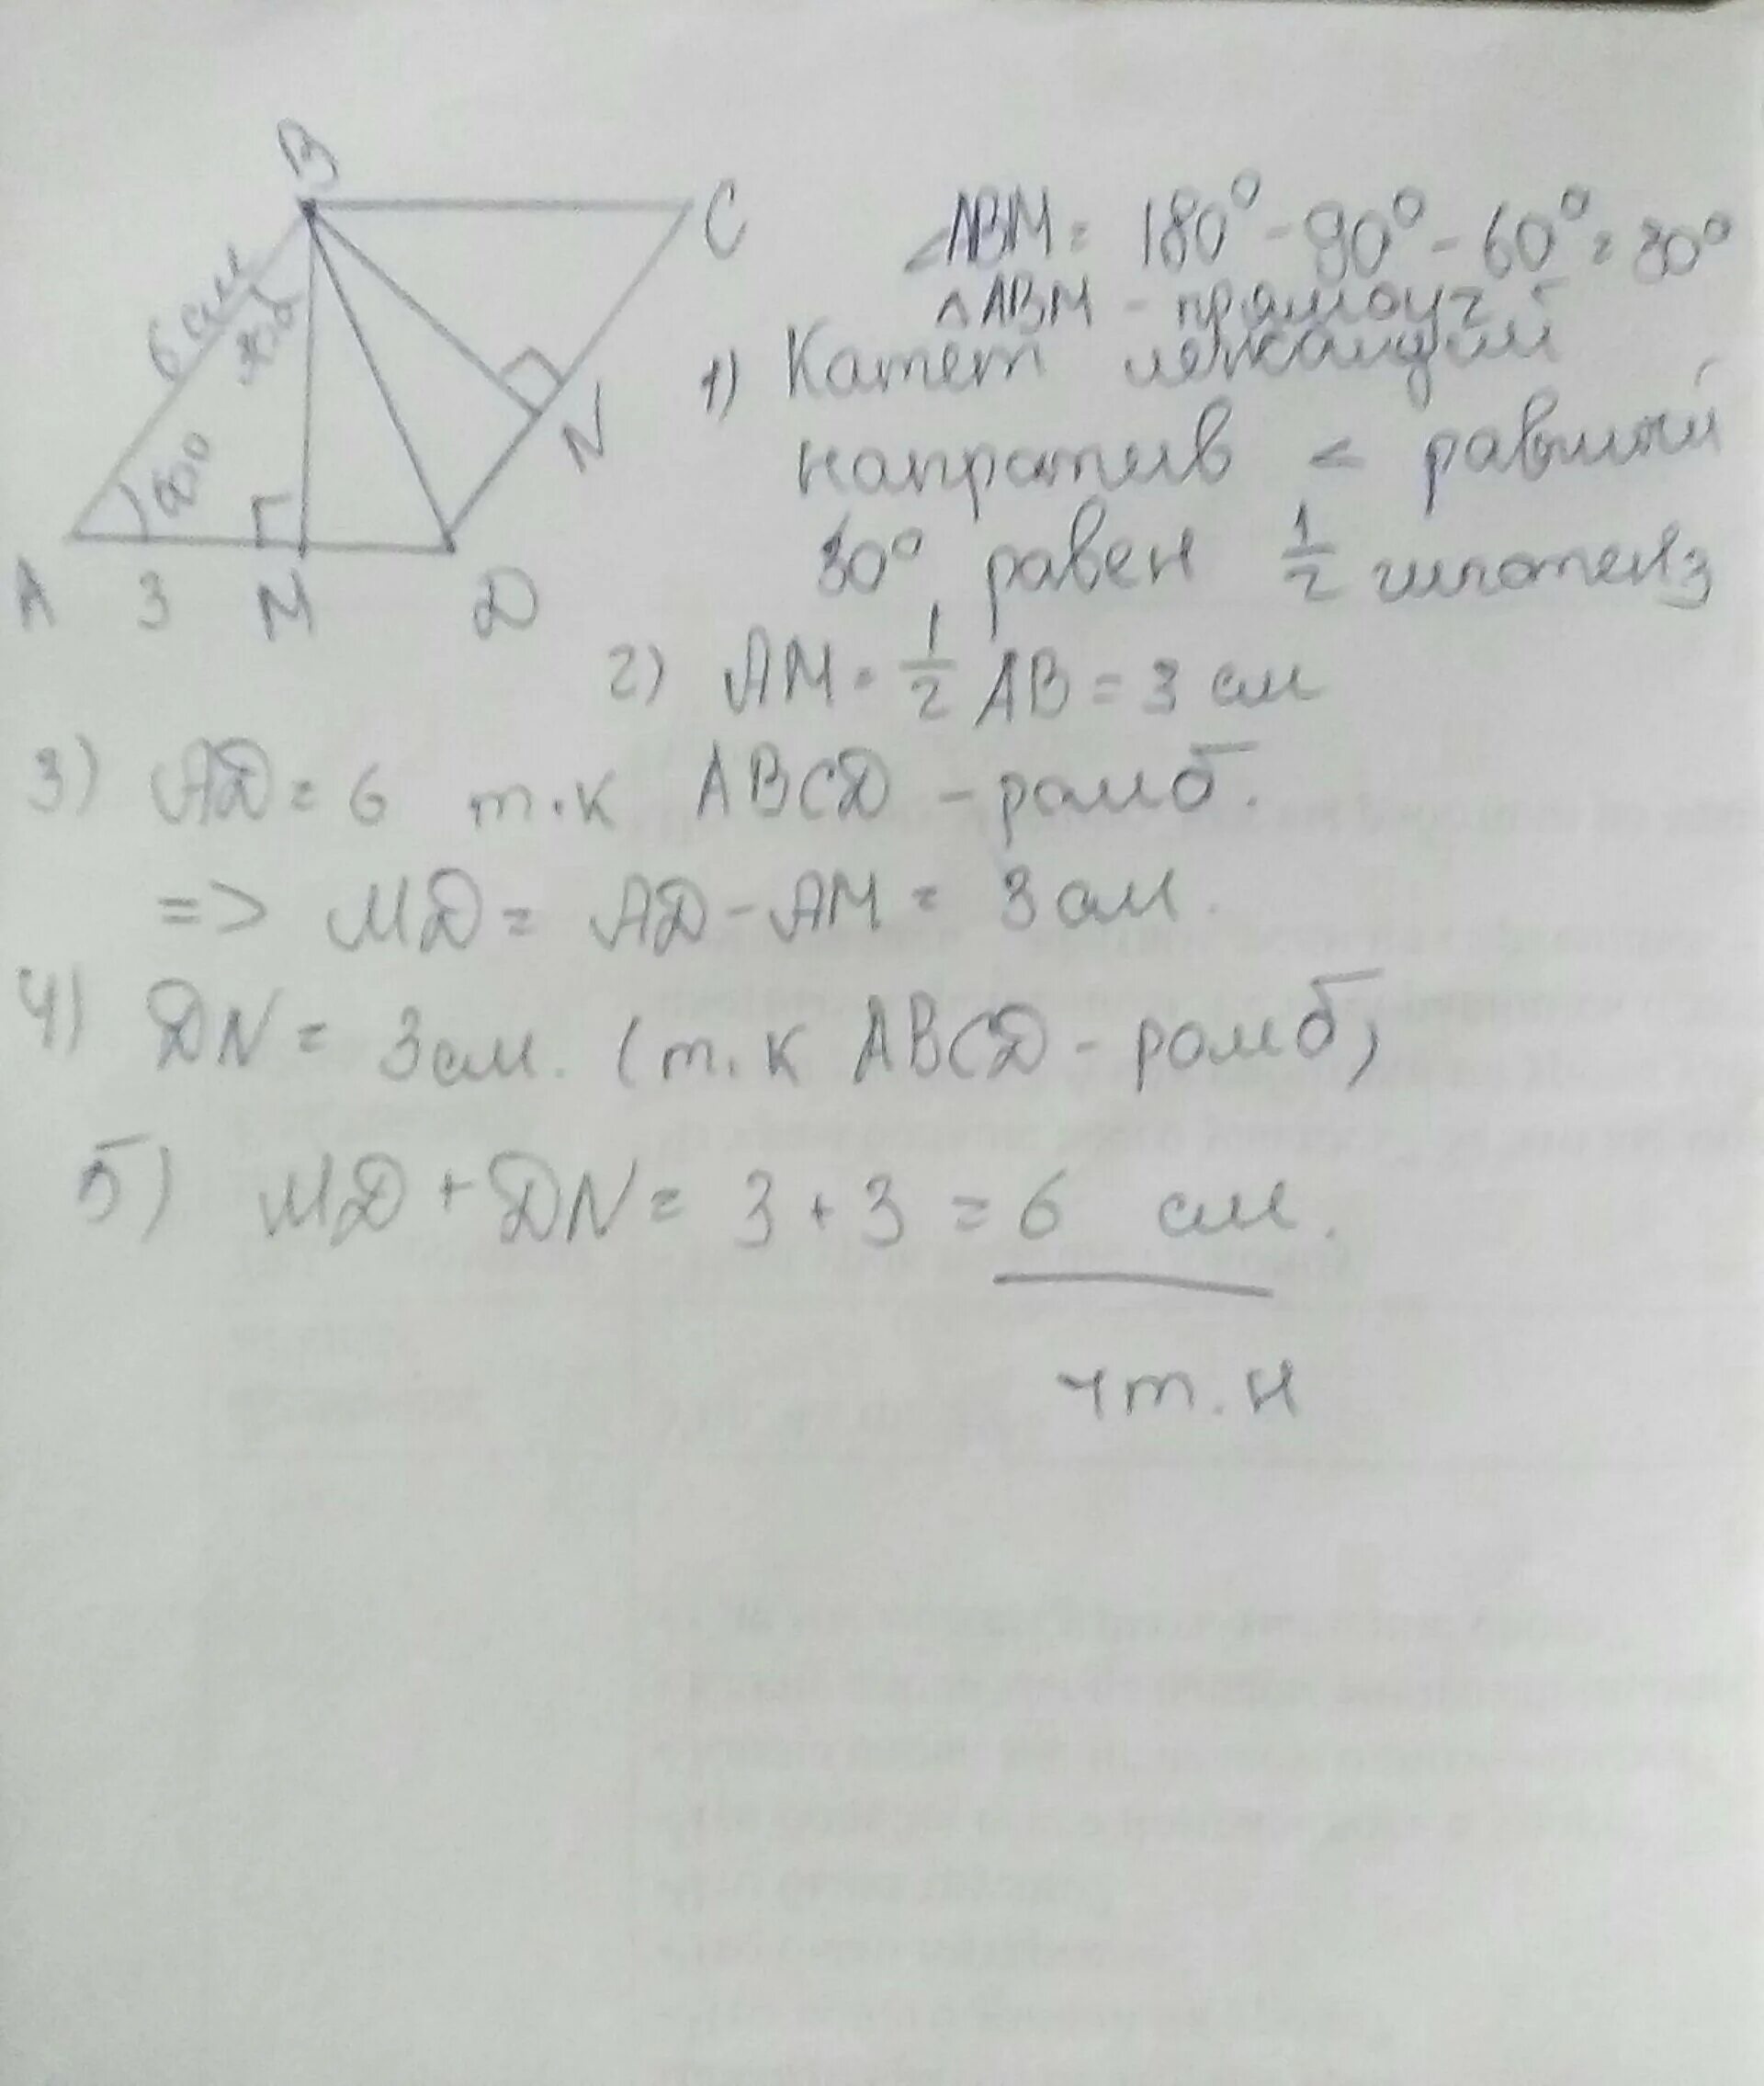 B
C
6 см
30
60
N
A 3 M D
∠ABM = 180° - 90° - 60° = 30°
△ABM - прямоуг
1) Катет лежащий
напротив < равный
30°, равен 1/2 гипотенз
2) AM = 1/2 AB = 3 см
3) AD = 6 т.к ABCD - ромб.
=> MD = AD - AM = 3 см.
4) DN = 3 см. (т.к ABCD - ромб)
5) MD + DN = 3 + 3 = 6 см.
чт.н